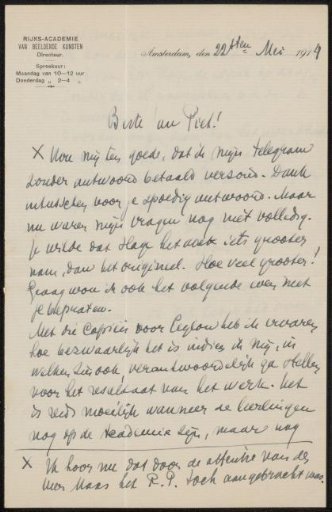 RIJKS-ACADEMIE
VAN BEELDENDE KUNSTEN
Directeur.
Spreekuur:
Maandag van 10-12 uur
Donderdag „ 2-4 „
Amsterdam, den 22sten Mei 1919
Beste van Piet!
X Hou mij ten goede, dat ik mijn telegram
zonder antwoord betaald verzond. Dank
intusschen voor je spoedig antwoord. Maar
nu waren mijn vragen nog niet volledig.
Je wilde dat Hage het werk iets grooter
nam, dan het origineel. Hoe veel grooter?
Graag wou ik ook het volgende even met
je bepraten.
Met die Copieën voor heb ik ervaren
hoe bezwaarlijk het is indien ik mij, in
welken zin ook verantwoordelijk ga stellen
voor het resultaat van het werk. Het
is reeds moeilijk wanneer de leerlingen
nog op de Academie zijn, maar nog
X Ik hoor nu dat door de attentie van den
Heer Maas het R.P. toch aangebracht was.